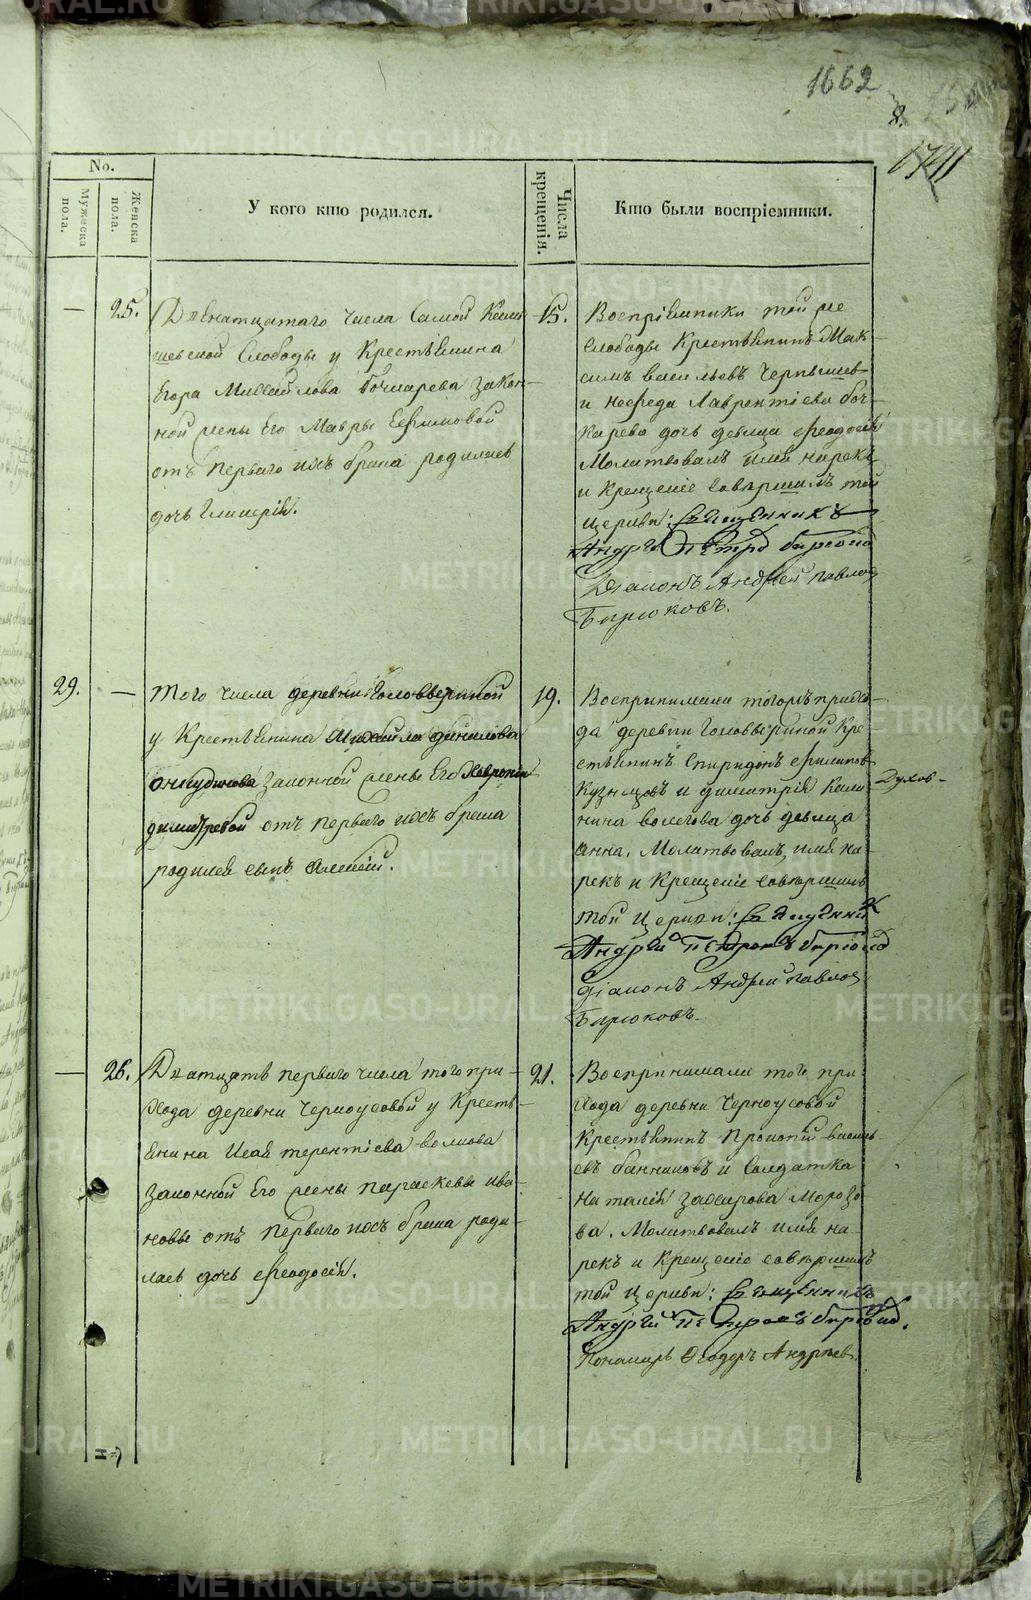 1662
8.
No.
Мужеска пола.
Женска пола.
У кого кто родился.
Числа крещенія.
Кто были воспріемники.
— 25.
Двенатцатаго числа Самой
шевской Слободы у Крестьянина
Егора Михайлова Бочкарева закон-
ной жены Его Мавры Ефимовой
отъ перваго ихъ брака родилась
дочь Гликерія.
15.
Воспріемники той же
Слободы Крестьянинъ Мак-
симъ васильевъ Чернышев
и Лаврентіева боч-
карева дочь девица феодосія
Молитвовалъ имя нарекъ
и Крещеніе совършилъ той
церкви: Священникъ
Андрей Петровъ бирюков
Діаконъ Андрей павлов
Бирюковъ.
29. —
того числа деревни Головыриной
у Крестьянина Михайла данилова
онкудинова законной жены Его Хавроніи
димитревой отъ перваго ихъ брака
родился сынъ Алексій.
19.
Воспринимали тогожъ прихо-
да деревни Головыриной Кре-
стьянинъ Спиридонъ филипов
Кузнецовъ и димитрія Кали-
нина волегова дочь девица
анна. Молитвовалъ, имя на-
рекъ и Крещеніе совършилъ
той церкви: Священник
Андрей Петровъ бирюков
діаконъ Андрей павлов
Бирюковъ.
Духов-
— 26.
Дватцать перваго числа того при-
хода деревни Черноусовой у Кресть-
янина Исая терентіева волкова
законной Его жены параскевы ива-
новы отъ перваго ихъ брака роди-
лась дочь феодосія.
21.
Воспринимали того при-
хода деревни Черноусовой
Крестьянинъ Прокопій василь-
евъ банниковъ и Солдатка
наталія захарова Морозо-
ва. Молитвовалъ имя на-
рекъ и Крещеніе совършилъ
той церкви: Священникъ
Андрей Петровъ бирюков.
Пономарь Феодоръ Андреев
METRIKI.GASO-URAL.RU